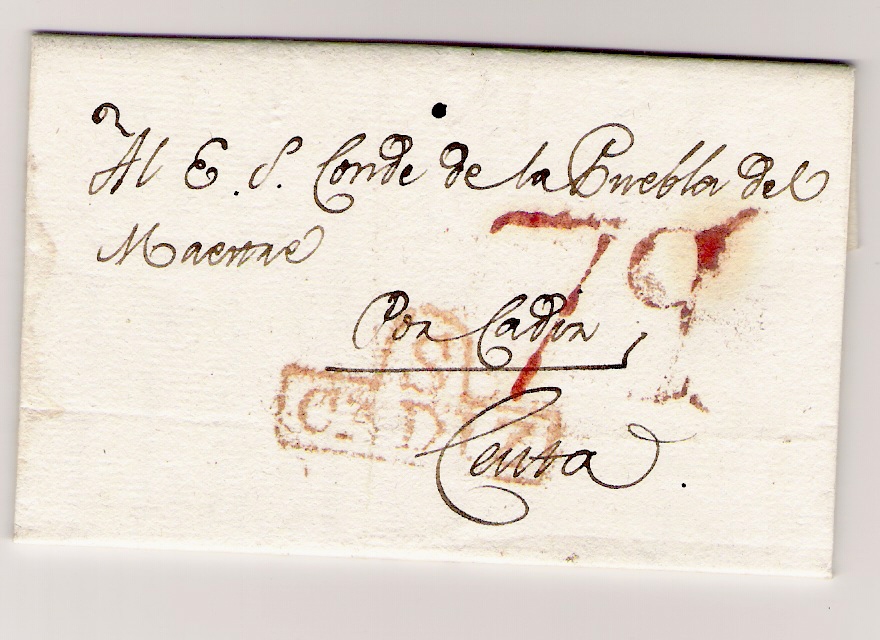 Al E. S. Conde de la Puebla del
Maestre
7 9
Por Cadiz
S
CADIZ
Ceuta.